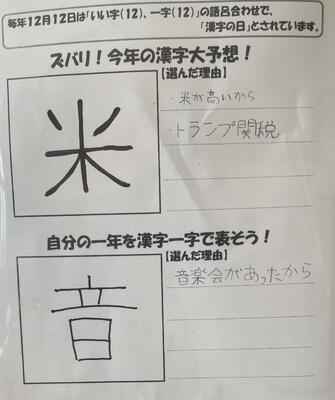 毎年12月12日は「いい字(12)、一字(12)」の語呂合わせで、
「漢字の日」とされています。
ズバリ！今年の漢字大予想！
【選んだ理由】
米
・米が高いから
・トランプ関税
自分の一年を漢字一字で表そう！
【選んだ理由】
音
音楽会があったから